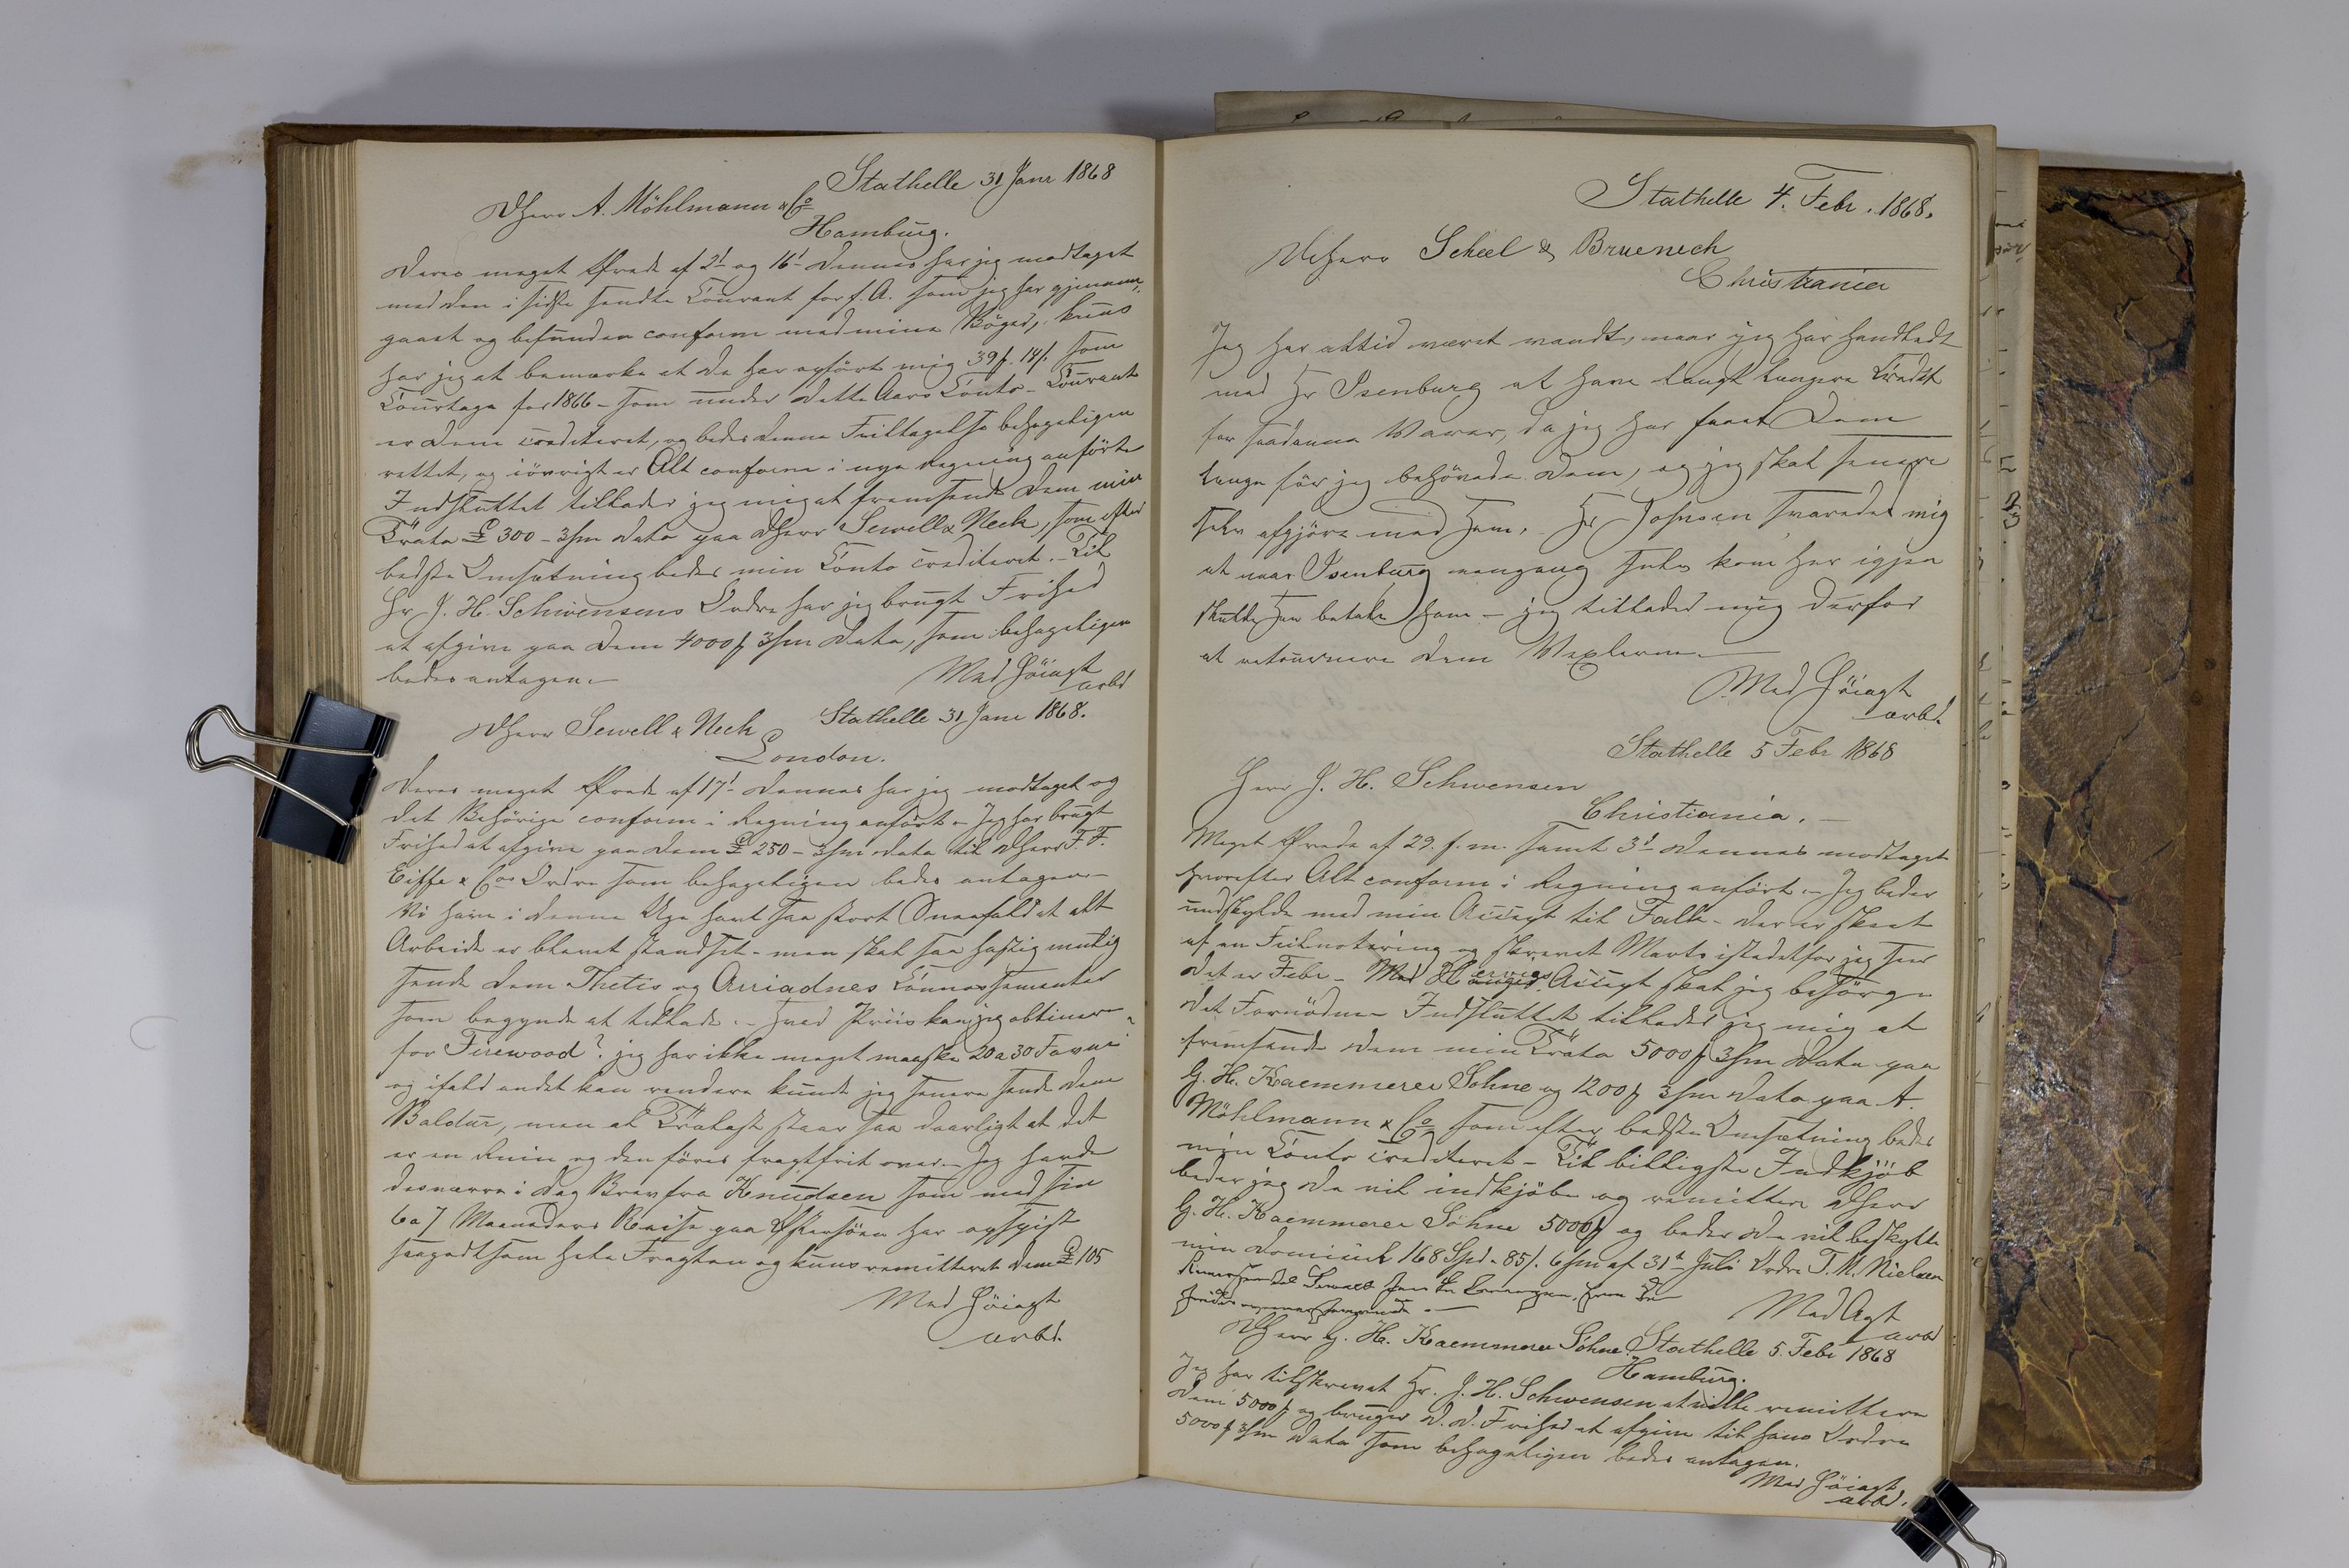 Stathelle 31 Janr 1868
DHerr A. Möhlmann & Co
Hamburg.
Deres meget Ærede af 2d og 16d dennes har jeg modtaget
med den i sidste sendte Courant for f. A. som jeg har gjennem-
gaaet og befunden conform med mine Böger, kuns
har jeg at bemærke at De har opfört mig 39 f. 14 s. som
Courtage for 1866 – som under dette Aars Conto-Courant
er Dem crediteret, og bedes denne Feiltagelse behageligen
rettet, og iövrigt er Alt conform i nye Regning anförte
Indsluttet tillader jeg mig at fremsende Dem min
Tratta £ 300 – 3/m dato paa DHerr Sewell & Neck, som efter
bedste Omsætning bedes min Conto crediteret. – Til
Hr J. H. Schwensens Ordre har jeg brugt Frihed
at afgive paa Dem 4000 f 3/m dato, som behageligen
bedes antagen. –
Med Höiagt
arbd
Stathelle 31 Janr 1868.
DHerr Sewell & Neck
London.
Deres meget Ærede af 17d dennes har jeg modtaget og
det Behörige conform i Regning anfört – Jeg har brugt
Frihed at afgive paa Dem £ 250 – 3/m dato til DHerr F. F.
Eiffe & Cos Ordre som behageligen bedes antagen –
Vi have i denne Uge havt saa stort Sneefald at alt
Arbeide er blevet standset – men skal saa hastig mulig
sende Dem Thetis og Arriadnes Connossementer
som begynde at lade. – Hvad Priis kan jeg obtinere
for Firewood? jeg har ikke meget maaske 20 a 30 Favne
og ifald andet kan rendere kunde jeg senere sende Dem
Baldur, men al Trælast staar saa daarligt at det
er en Ruin og den föres fragtfrit over. – Jeg havde
desværre i dag Brev fra Knudsen som med sin
6 a 7 Maaneders Reise paa Östersöen har opspist
saagodtsom hele Fragten og kuns remitteret Dem £ 105
Med Höiagt
arbd.
Stathelle 4. Febr. 1868.
DHerr Scheel & Bruenech
Christiania
Jeg har altid været vandt, naar jeg har handlet
med Hr Isenburg at have langt længere Credit
for saadanne Varer, da jeg har faaet Dem
længe för jeg behövede Dem, og jeg skal senere
selv afgjöre med Ham. Hr Johnsen svarede mig
at naar Isenburg engang selv kom her igjen
skulde Han betale ham – jeg tillader mig derfor
at retournere Dem Vexlerne. –
Med Höiagt
arbd.
Stathelle 5 Febr 1868
Herr J. H. Schwensen
Christiania. –
Meget Ærede af 29. f. m. samt 3d dennes modtaget
hvorefter Alt conform i Regning anfört. – Jeg beder
undskylde med min Accept til Falk – der er skeet
af en Feilnotering og skrevet Marts istedetfor jeg seer
det er Febr – Med Accept skal jeg besörge
det Fornödne – Indsluttet tillader jeg mig at
fremsende Dem min Tratta 5000 f 3/m dato paa
G. H. Kaemmerer Söhne og 1200 f 3/m dato paa A.
Möhlmann & Co som efter bedste Omsætning bedes
min Conto crediteret – Til billigste Indkjöb
beder jeg De vil indkjöbe og remittere DHerr
G. H. Kaemmerer Söhne 5000 f og beder De vil beskytte
min Domicil 168 Spd. 85 s. 6/m af 31te Juli Ordre T. M. Nielsen
Med Agt
arbd
DHerr G. H. Kaemmerer Söhne. Stathelle 5. Febr 1868
Hamburg.
Jeg har tilskrevet Hr. J. H. Schwensen at ville remittere
Dem 5000 f og bruger d. d. Frihed at afgive til hans Ordre
5000 f 3/m dato som behageligen bedes antagen.
Med Höiagt
arbd.